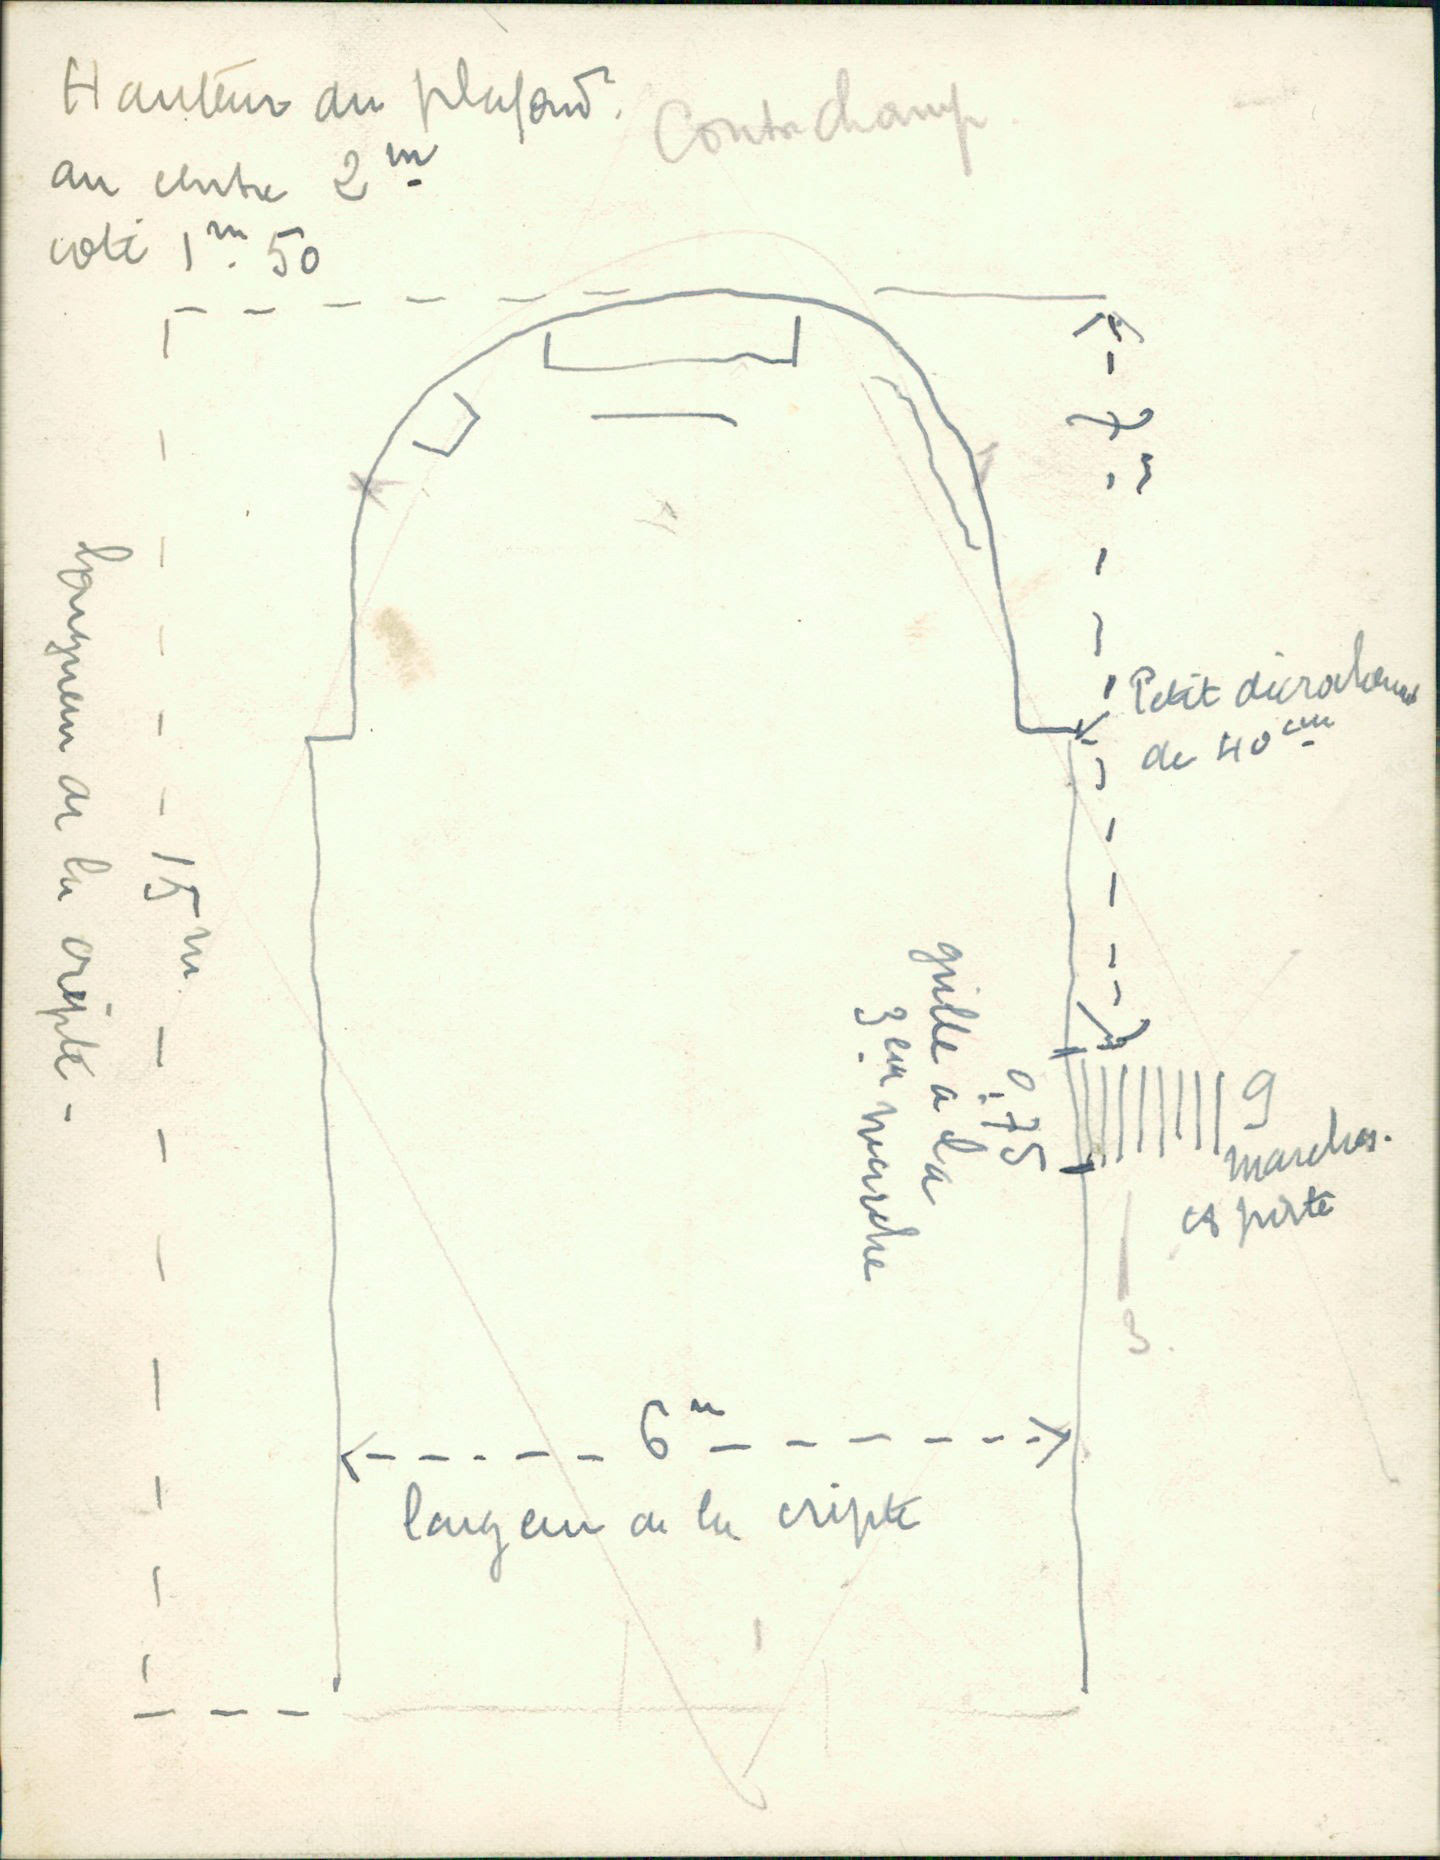 Hauteur du plafond.
Contrechamp.
au centre 2m
coté 1m.50
7m
Petit décrochement
de 40cm
longueur de la cripte -
15m
grille a la
3em marche
0.75
9
marches.
porte
3.
6m
largeur de la cripte